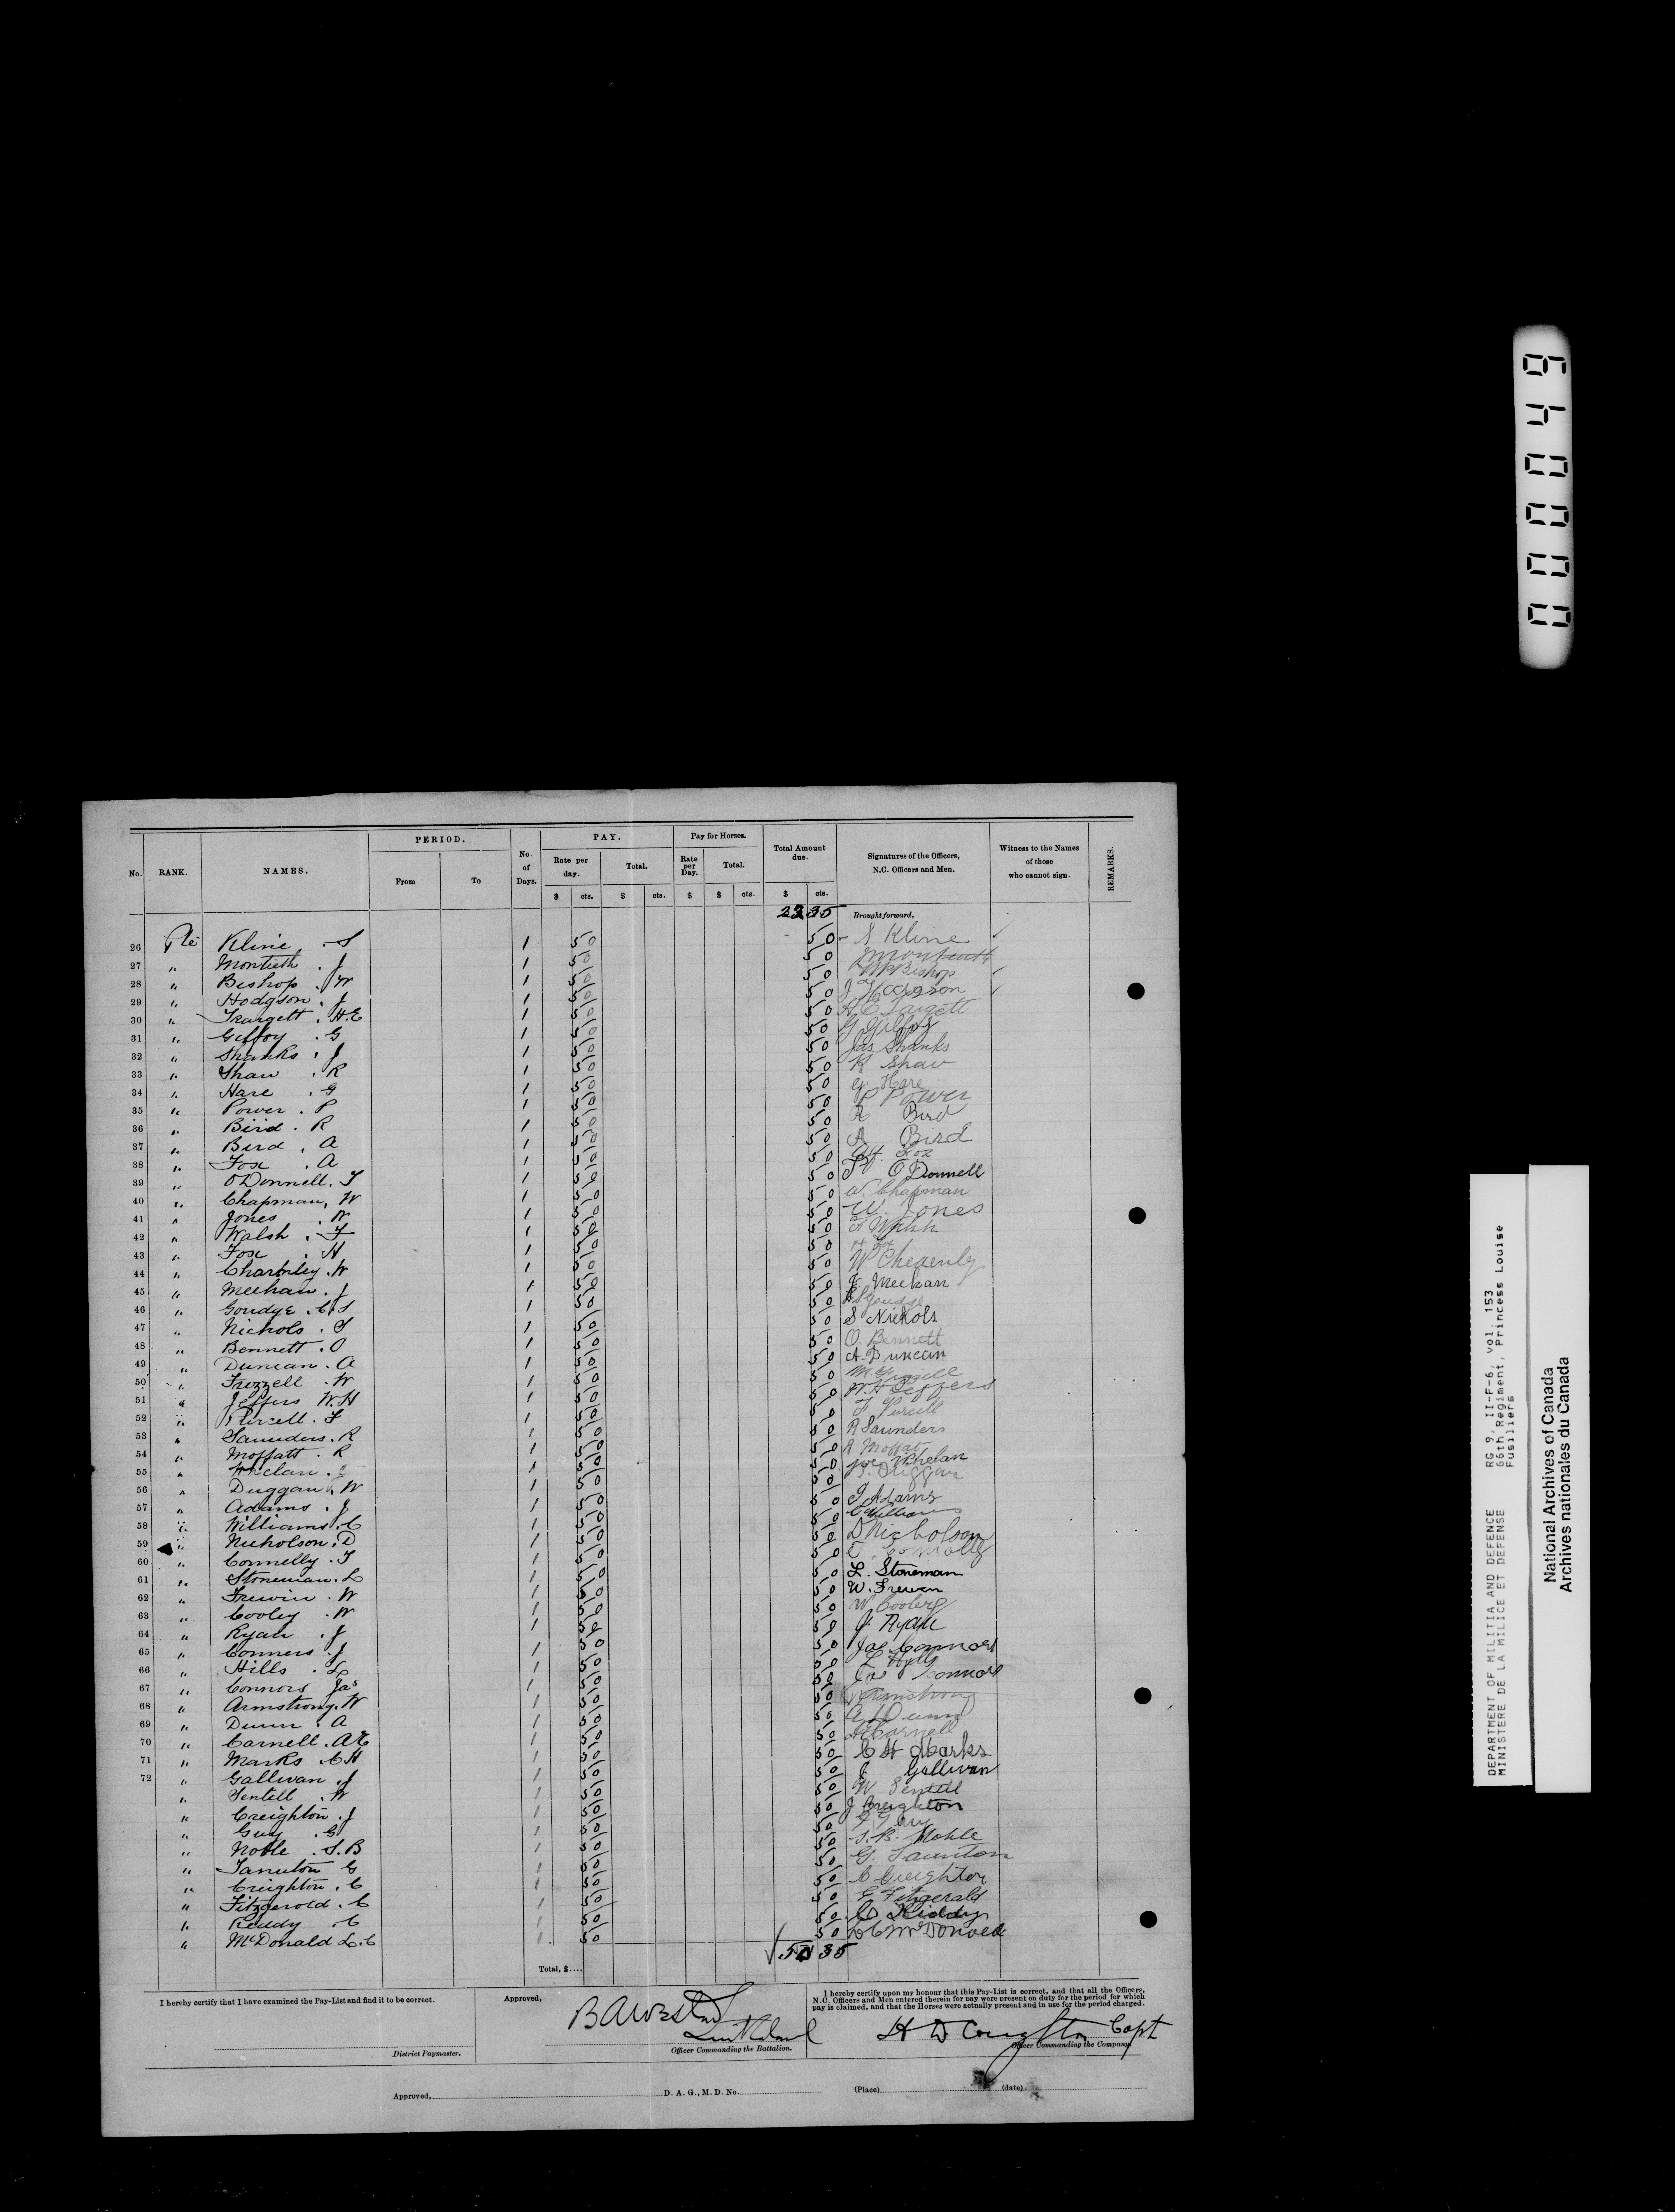 PERIOD. PAY. Pay for Horses.
No. RANK. NAMES. From To No. of Days. Rate per day. Total. Rate per Day. Total. Total Amount due. Signatures of the Officers, N.C. Officers and Men. Witness to the Names of those who cannot sign. REMARKS.
$ cts. $ cts. $ $ cts. $ cts.
Brought forward,
26 Pte Kline . S 1 50 50 S Kline
27 " Montieth . J 1 50 50
28 " Bishop . W 1 50 50 W Bishop
29 " Hodgson . J 1 50 50 J Hodgson
30 " Traugett . H.E 1 50 50
31 " Gilfoy . G 1 50 50 G Gilfoy
32 " Shanks . J 1 50 50 Jas Shanks
33 " Shaw . R 1 50 50 R Shaw
34 " Hare . G 1 50 50 G. Hare
35 " Power . P 1 50 50 P Power
36 " Bird . R 1 50 50 R Bird
37 " Bird . A 1 50 50 A Bird
38 " Fox . A 1 50 50 Fox
39 " O'Donnell . T 1 50 50 O'Donnell
40 " Chapman, W 1 50 50 W. Chapman
41 " Jones . W 1 50 50 W. Jones
42 " Walsh . F 1 50 50 F Walsh
43 " Fox . H 1 50 50 H Fox
44 " Charnley . W 1 50 50
45 " Meehan . J 1 50 50 J Meehan
46 " Goudge . C.S 1 50 50
47 " Nichols . S 1 50 50 S Nichols
48 " Bennett . O 1 50 50 O. Bennett
49 " Duncan . A 1 50 50 A. Duncan
50 " Frizzell . W 1 50 50
51 " Jeffers W.H 1 50 50 W.H Jeffers
52 " Purcell . F 1 50 50 F Purcell
53 " Saunders . R 1 50 50 R Saunders
54 " Moffatt . R 1 50 50 R Moffat
55 " Whelan . J 1 50 50 Whelan
56 " Duggan . W 1 50 50
57 " Adams . J 1 50 50 J Adams
58 " Williams . C 1 50 50 C Williams
59 " Nicholson . D 1 50 50 D Nicholson
60 " Connelly . T 1 50 50
61 " Stoneman . L 1 50 50 L. Stoneman
62 " Frewin . W 1 50 50 W. Frewen
63 " Cooley . W 1 50 50 W Cooley
64 " Ryan . J 1 50 50 J. Ryan
65 " Conners . J 1 50 50 Jas Connors
66 " Hills . L 1 50 50 L Hills
67 " Connors Jas 1 50 50 Jas Connors
68 " Armstrong . W 1 50 50 Armstrong
69 " Dunn . A 1 50 50 A Dunn
70 " Carnell . A E 1 50 50 Carnell
71 " Marks . C H 1 50 50 C H Marks
72 " Gallivan . J 1 50 50 J Gallivan
" Sentell . W 1 50 50 W Sentell
" Creighton . J 1 50 50 J Creighton
" Guy . G 1 50 50 G Guy
" Noble . S.B 1 50 50 S.B. Noble
" Taunton G 1 50 50 G. Taunton
" Creighton . C 1 50 50 C Creighton
" Fitzgerald . C 1 50 50 Fitzgerald
" Reddy . C 1 50 50
" McDonald L.C 1 50 50 L C McDonald
Total, $....
I hereby certify that I have examined the Pay-List and find it to be correct.
District Paymaster.
Approved,
Officer Commanding the Battalion.
I hereby certify upon my honour that this Pay-List is correct, and that all the Officers, N.C. Officers and Men entered therein for pay were present on duty for the period for which pay is claimed, and that the Horses were actually present and in use for the period charged.
H D Creighton Capt
Officer Commanding the Company.
Approved, D. A. G., M. D. No. (Place) (date)
DEPARTMENT OF MILITIA AND DEFENCE RG 9, II-F-6, vol. 153
MINISTERE DE LA MILICE ET DEFENSE 66th Regiment, Princess Louise
Fusiliers
National Archives of Canada
Archives nationales du Canada